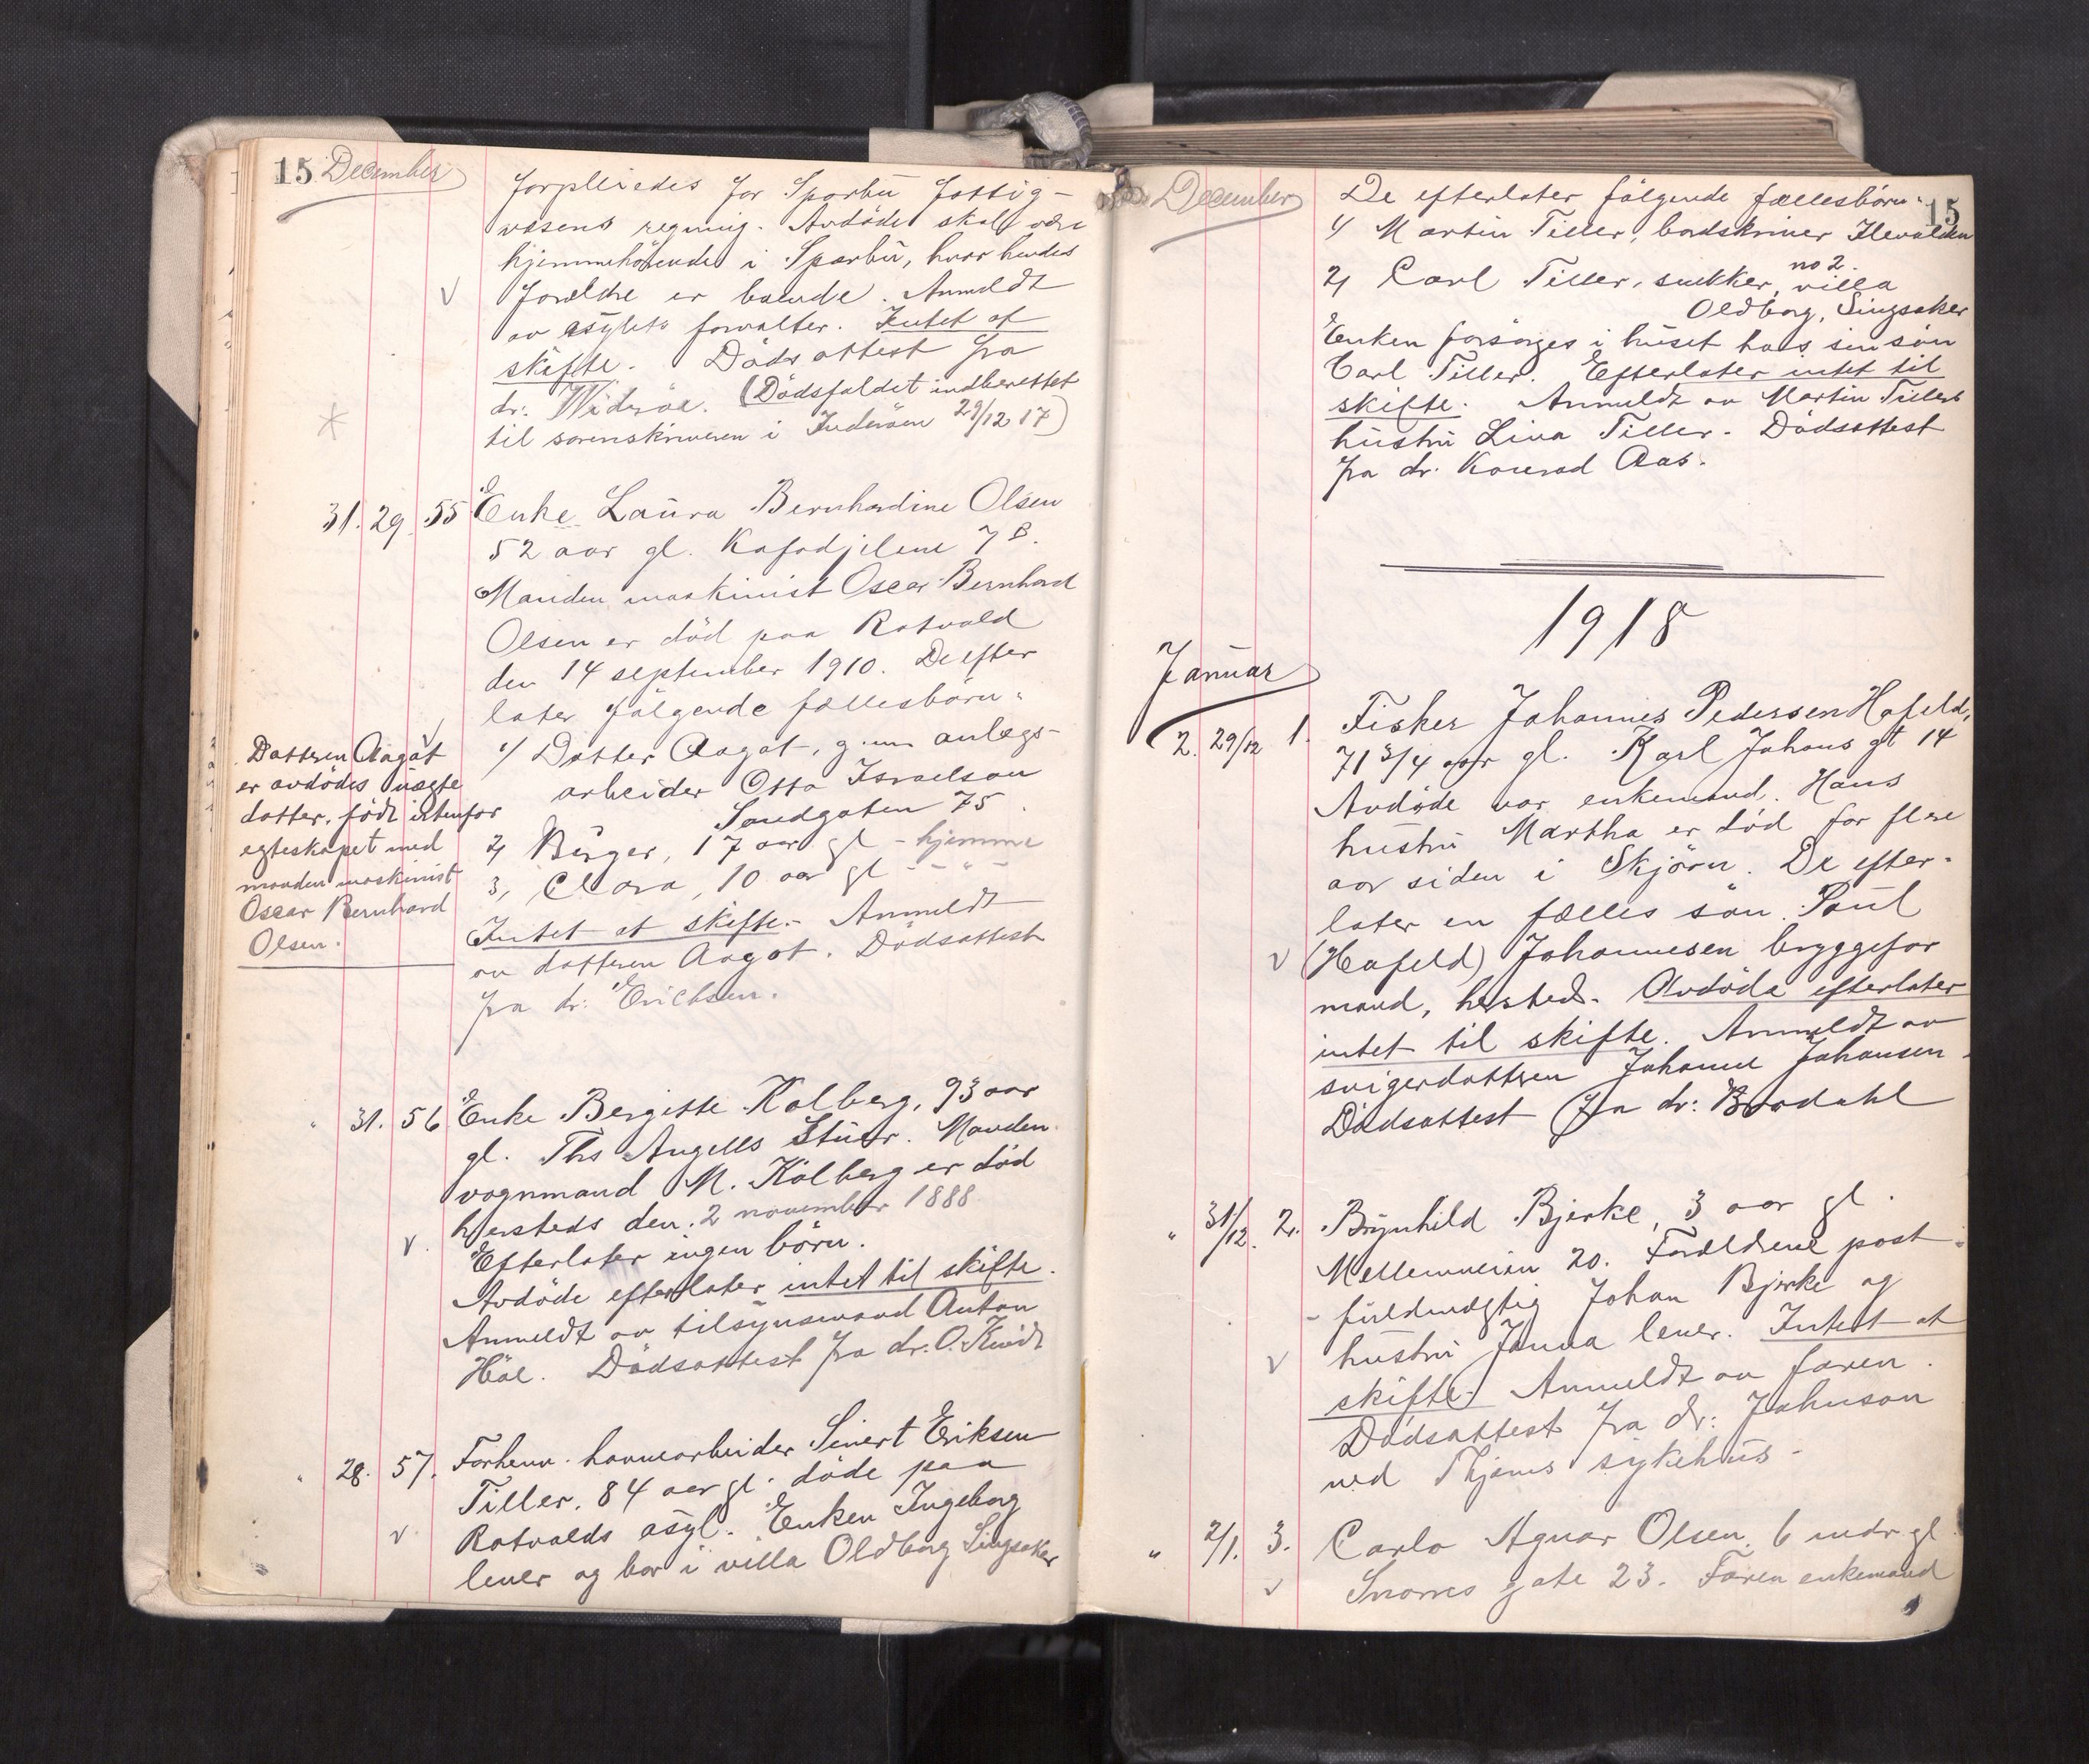 15 December
forpleiedes for Sparbu fattig-
væsens regning. Avdöde skal være
hjemmehörende i Sparbu, hvor hendes
forældre er boende. Anmeldt
av asylets forvalter. Intet at
skifte. Dödsattest fra
dr: Wideröe. (Dödsfaldet indberettet
til sorenskriveren i Inderöen 29/12 17)
31. 29. 55 Enke Laura Bernhardine Olsen
52 aar gl. Kafadjelene 7 B.
Manden maskinist Oscar Bernhard
Olsen er död paa Rotvold
den 14 september 1910. De efter
later fölgende fællesbörn:
1/ Datter Aagot, g. m. anlægs-
arbeider Otto Israelson
Sandgaten 75.
2/ Birger, 17 aar gl - hjemme
3, Clara, 10 aar gl - " -
Intet at skifte.- Anmeldt
av datteren Aagot. Dödsattest
fra dr: Erichsen.
Datteren Aagot
er avdödes uægte
datter, födt utenfor
egteskapet med
manden maskinist
Oscar Bernhard
Olsen.
" 31. 56 Enke Bergitte Kolberg, 93 aar
gl. Ths Angells Stuer. Manden
vognmand M. Kolberg er död
hersteds den 2 november 1888
Efterlater ingen börn.
Avdöde efterlater intet til skifte.
Anmeldt av tilsynsmand Anton
Höe. Dödsattest fra dr. O.
" 28. 57. Forhenv. havnearbeider Sivert Eriksen
Tiller, 84 aar gl. döde paa
Rotvolds asyl. Enken Ingeborg
lever og bor i villa Oldborg Singsaker
December 15
De efterlater fölgende fællesbörn:
1/ Martin Tiller, bordskriver Ilevolden
no 2.
2/ Carl Tiller, snekker, villa
Oldborg, Singsaker
Enken forsörges i huset hos sin sön
Carl Tiller. Efterlater intet til
skifte. Anmeldt av Martin Tillers
hustru Lina Tiller. Dödsattest
fra dr. Konrad Aas.
1918
Januar
2. 29/12 1. Fisker Johannes Pedersen Hafeld,
71 3/4 aar gl. Karl Johans gt 14
Avdöde var enkemand. Hans
hustru Martha er död for flere
aar siden i Skjörn. De efter-
later en fælles sön. Paul
(Hafeld) Johannesen bryggefor
mand, hersteds. Avdöde efterlater
intet til skifte. Anmeldt av
svigerdatteren Johanne Johansen.
Dödsattest fra dr: Bordahl
" 31/12. 2. Brynhild Bjerke, 3 aar gl.
Mellemveien 20. Forældrene post-
fuldmægtig Johan Bjerke og
hustru Janna lever. Intet at
skifte. Anmeldt av faren.
Dödsattest fra dr: Johnson
ved Thjems sykehus -
" 2/1. 3. Carlo Agnar Olsen, 6 mdr gl
Snorres gate 23. Faren enkemand